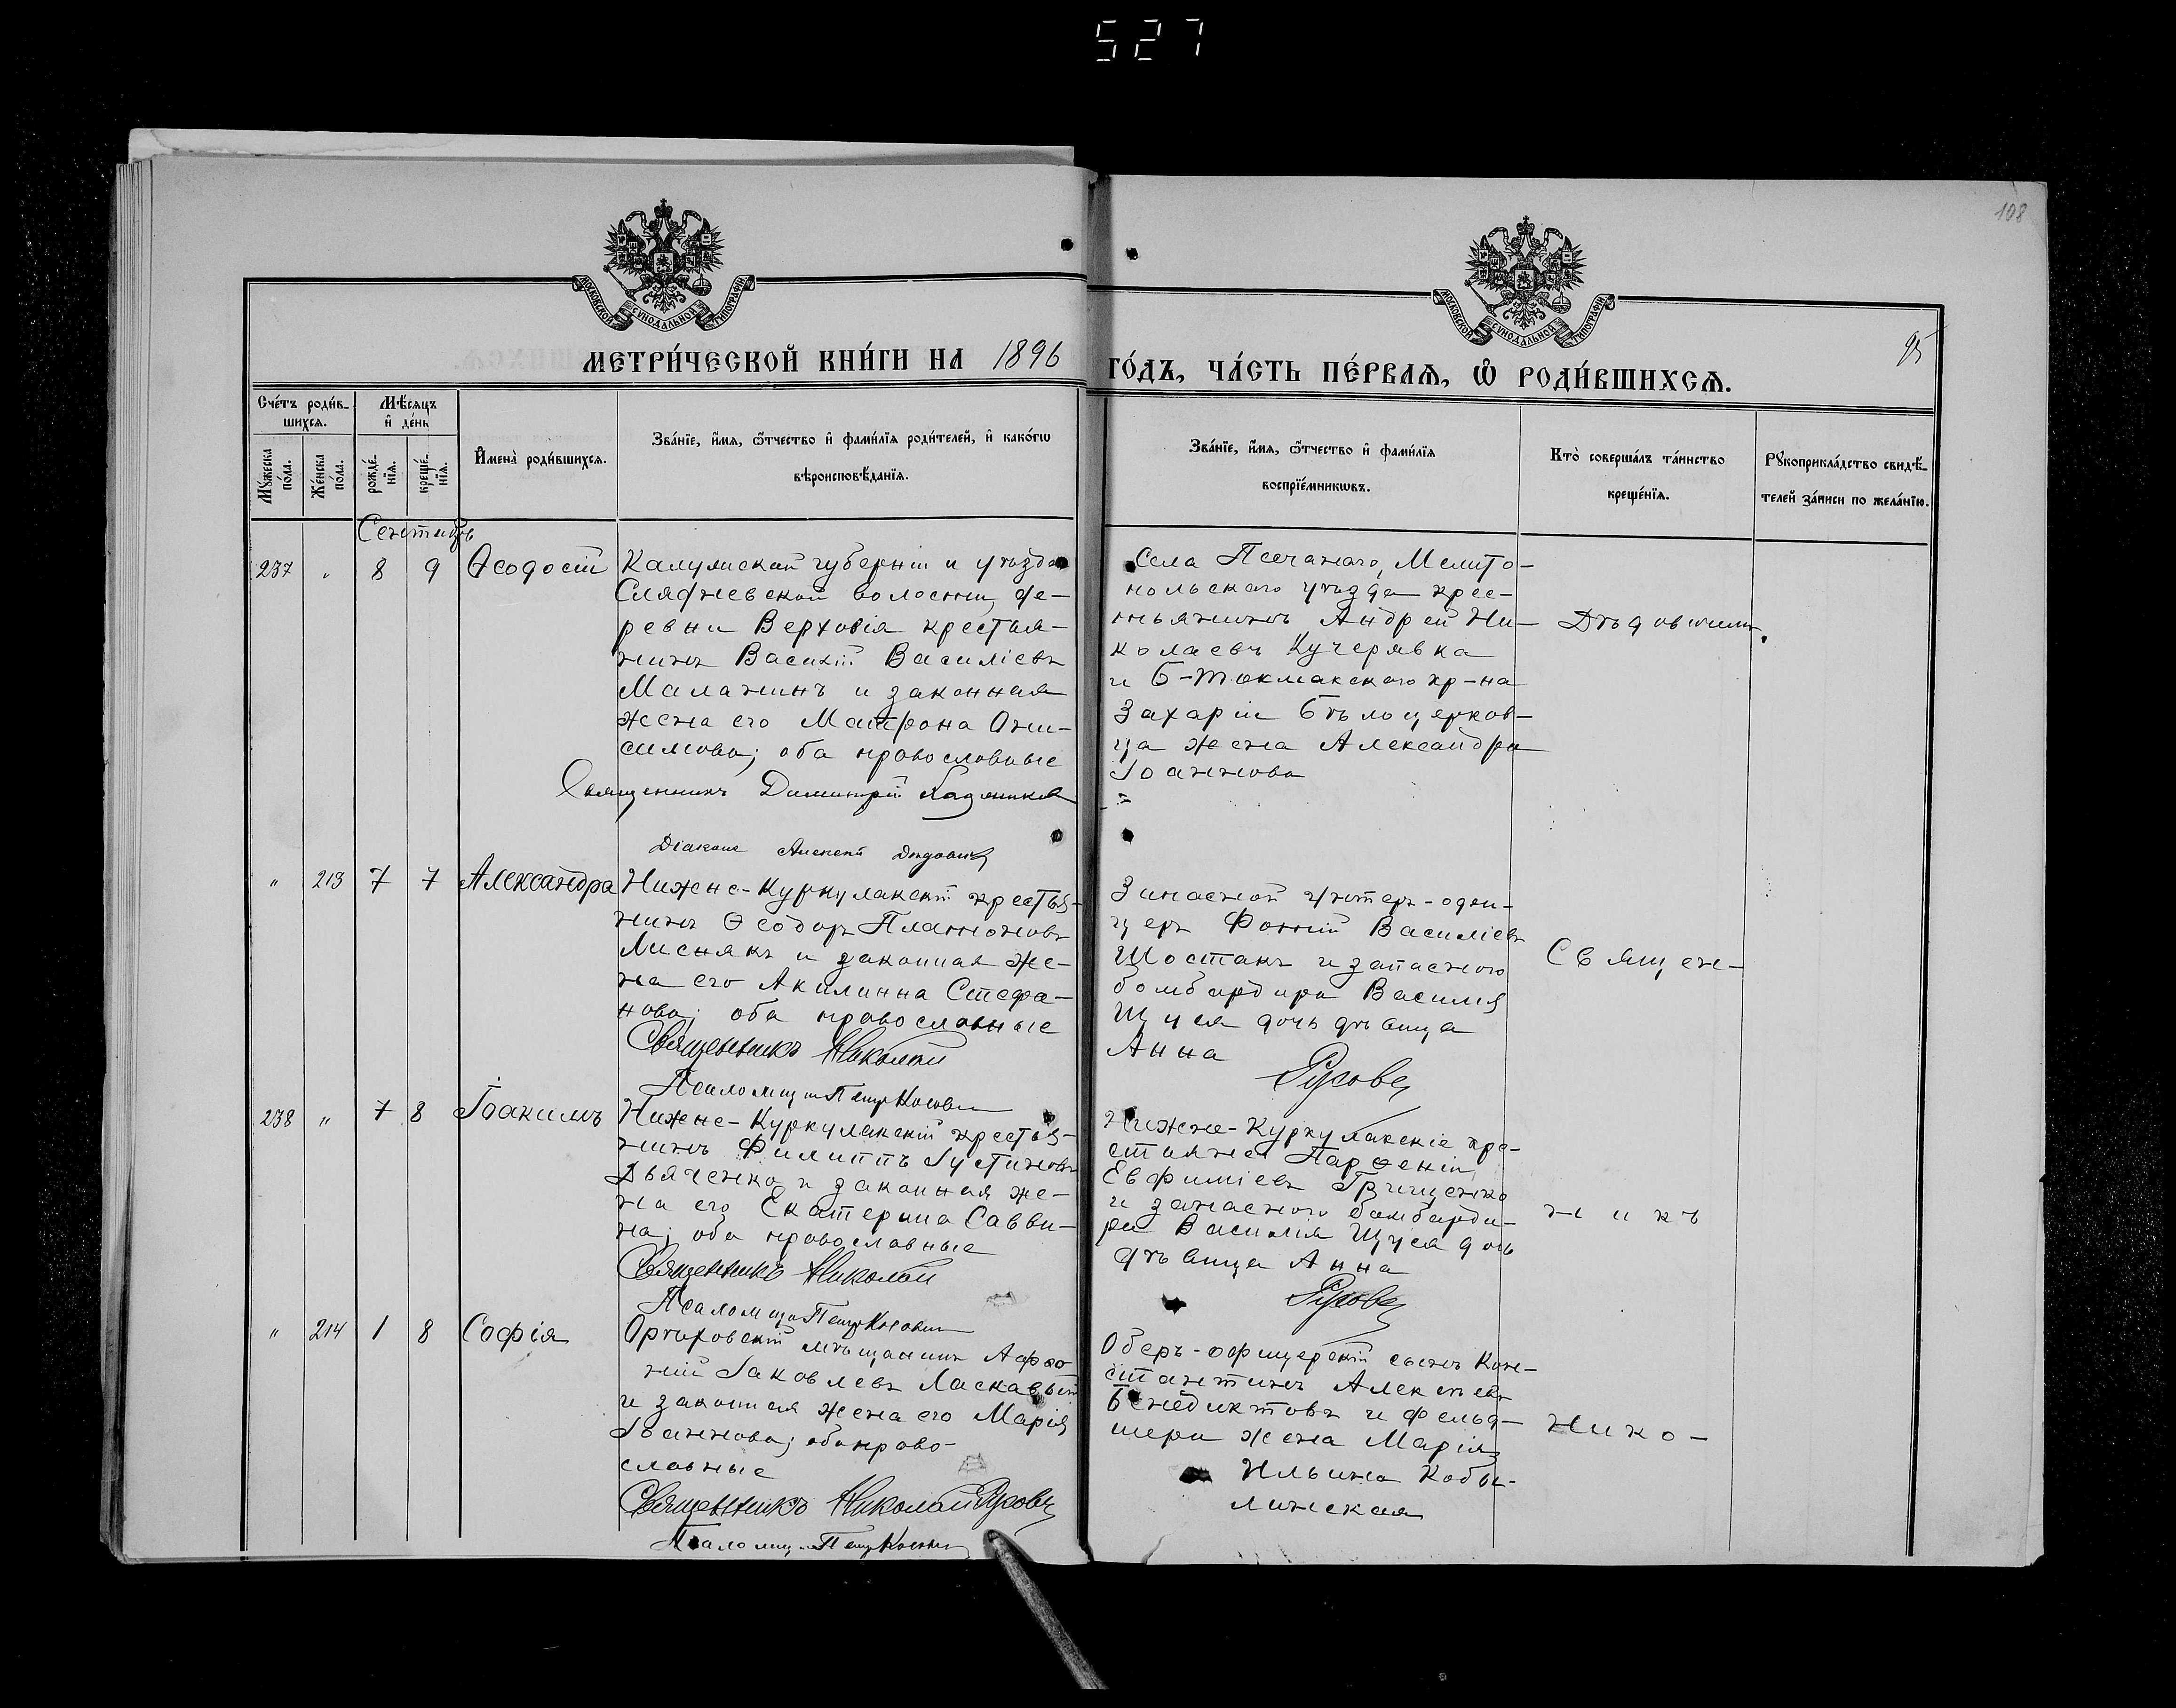 527
108
МОСКОВСКОЙ СѴНОДАЛЬНОЙ ТИПОГРАФІИ
МОСКОВСКОЙ СѴНОДАЛЬНОЙ ТИПОГРАФІИ
МЕТРИ́ЧЕСКОЙ КНИ́ГИ НА 1896
ГО́ДЪ, ЧА́СТЬ ПЕ́РВАЯ, Ѽ РОДИ́ВШИХСѦ.
95
Сче́тъ роди́в-
шихсѧ.
Мѣ́сѧцъ
и҆ де́нь
Мꙋ́жеска по́ла.
Же́нска по́ла.
рожде́-нїѧ.
креще́-нїѧ.
И҆мена̀ роди́вшихсѧ.
Зва́нїе, и҆́мѧ, ѻ҆́тчество и҆ фами́лїѧ роди́телей, и҆ како́гѡ
вѣроисповѣ́данїѧ.
Зва́нїе, и҆́мѧ, ѻ҆́тчество и҆ фами́лїѧ
воспрїе́мникѡвъ.
Кто̀ соверша́лъ та́инство
креще́нїѧ.
Рꙋкоприкла́дство свидѣ́-
телей за́писи по жела́нїю.
Сентябрь
237 " 8 9 Ѳеодосій
Калужской губерніи и уѣзда
волости, де-
ревни Верховія крестья-
нинъ Василій Василіевъ
Малахинъ и законная
жена его Матрона Они-
симова; оба православные
Священникъ Димитрій
Діаконъ Алексей Дѣдовичъ
Села Песчанаго, Мелито-
польскаго уѣзда крес-
тьянинъ Андрей Ни-
колаевъ Кучерявка
и Б-Токмакскаго кр-на
Захарія Бѣлоцерков-
ца жена Александра
Іоаннова
" 213 7 7 Александра
Нижне-Куркулакскій крестья-
нинъ Ѳеодоръ Платоновъ
Лиснякъ и законная же-
на его Акилина Стефа-
нова; оба православные
Священникъ Николай
Русовъ
Псаломщ. Петръ
Запасной унтеръ-офи-
церъ Фотій Василіевъ
Шостакъ и запаснаго
бомбардира Василія
Щуся дочь дѣвица
Анна
Священ-
238 " 7 8 Іоакимъ
Нижне-Куркулакскій крестья-
нинъ Филиппъ Іустиновъ
Дьяченко и законная же-
на его Екатерина Савви-
на; оба православные
Священникъ Николай
Русовъ
Псаломщ. Петръ
Нижне-Куркулакскіе кре-
стьяне Парѳеній
Евфиміевъ Грищенко
и запаснаго бомбарди-
ра Василія Щуся дочь
дѣвица Анна
никъ
" 214 1 8 Софія
Орѣховскій мѣщанинъ Афѳо-
ній Іаковлевъ Ласкавый
и законная жена его Марія
Іоаннова; оба право-
славные
Священникъ Николай Русовъ
Псаломщ. Петръ
Оберъ-офицерскій сынъ Кон-
стантинъ Алексѣевъ
Бенедиктовъ и фельд-
шера жена Марія
Ильина Кобы-
линская
Нико-